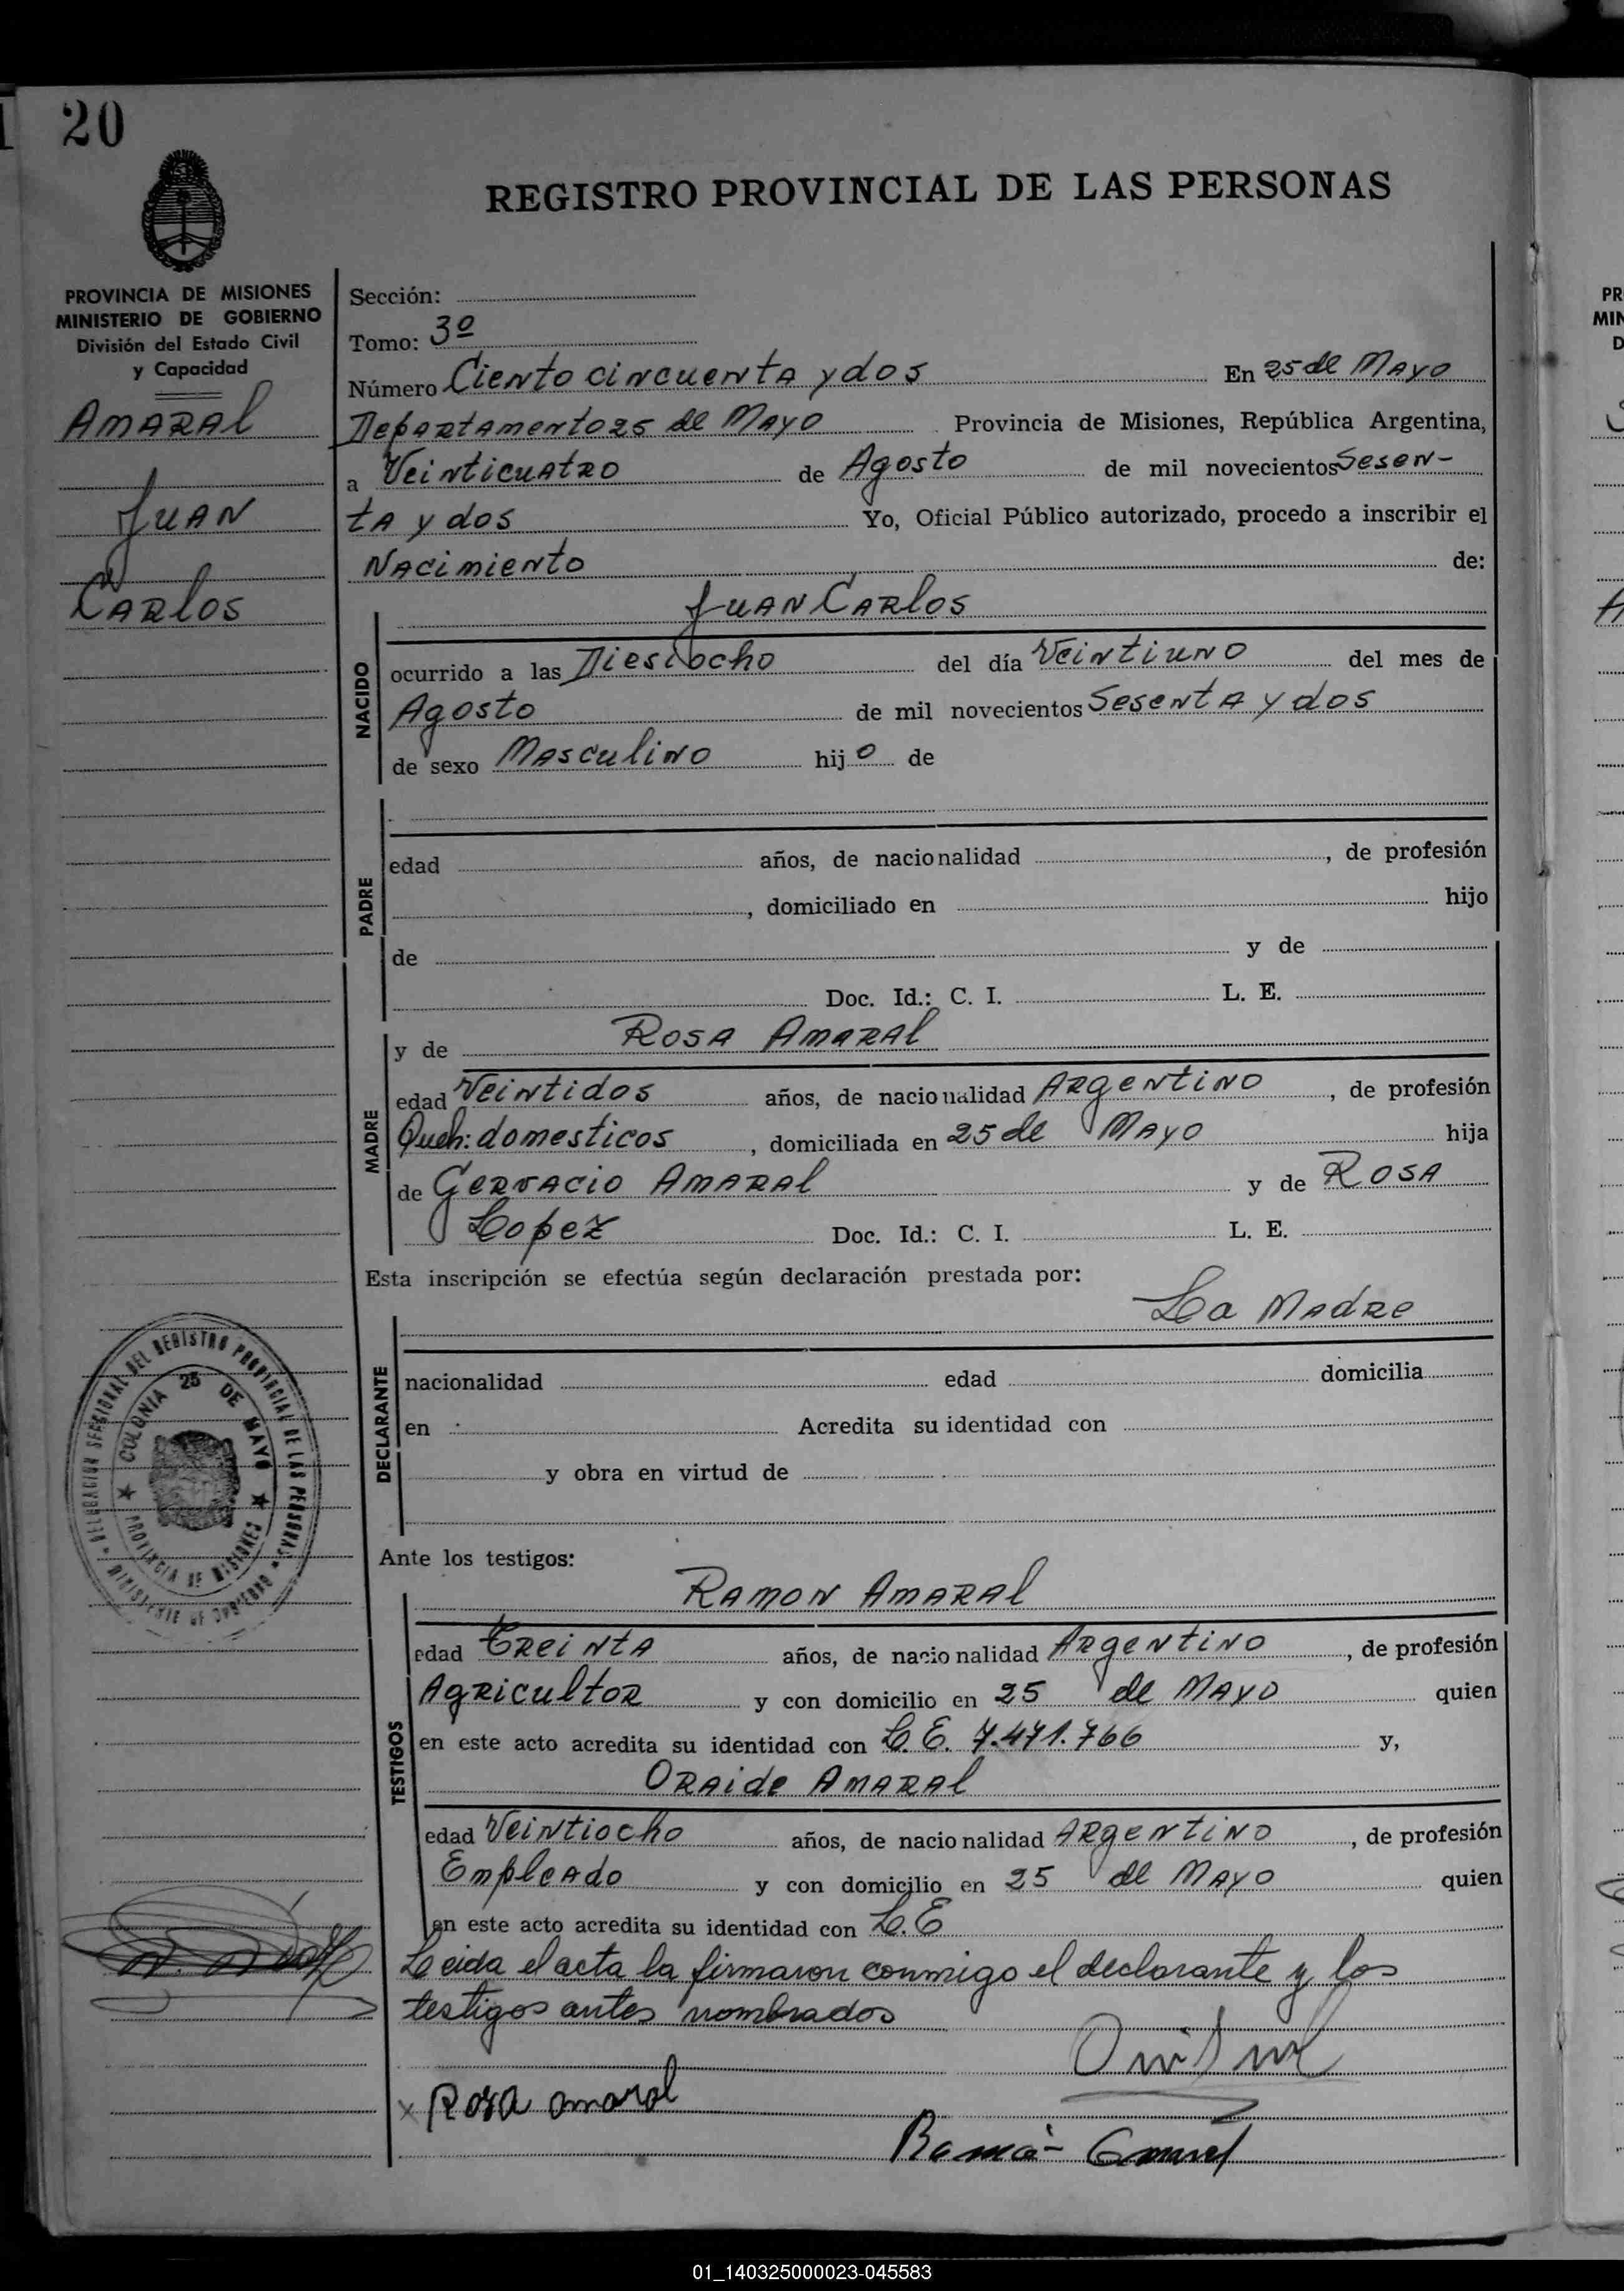 20
REGISTRO PROVINCIAL DE LAS PERSONAS
PROVINCIA DE MISIONES
MINISTERIO DE GOBIERNO
División del Estado Civil
y Capacidad
Amaral
Juan
Carlos
Sección:
Tomo: 3º
Número Ciento cincuenta y dos En 25 de Mayo
Departamento 25 de Mayo Provincia de Misiones, República Argentina,
a Veinticuatro de Agosto de mil novecientos Sesen-
ta y dos Yo, Oficial Público autorizado, procedo a inscribir el
Nacimiento de:
Juan Carlos
NACIDO
ocurrido a las Diesiocho del día Veintiuno del mes de
Agosto de mil novecientos Sesenta y dos
de sexo Masculino hijo de
PADRE
edad años, de nacionalidad , de profesión
, domiciliado en hijo
de y de
Doc. Id.: C. I. L. E.
MADRE
y de Rosa Amaral
edad Veintidos años, de nacionalidad Argentino, de profesión
Queh: domesticos, domiciliada en 25 de Mayo hija
de Gervacio Amaral y de Rosa
Lopez Doc. Id.: C. I. L. E.
Esta inscripción se efectúa según declaración prestada por:
La Madre
DECLARANTE
nacionalidad edad domicilia
en Acredita su identidad con
y obra en virtud de
Ante los testigos:
TESTIGOS
Ramon Amaral
edad Treinta años, de nacionalidad Argentino, de profesión
Agricultor y con domicilio en 25 de Mayo quien
en este acto acredita su identidad con L.E. 7.471.766 y,
Oraide Amaral
edad Veintiocho años, de nacionalidad Argentino, de profesión
Empleado y con domicilio en 25 de Mayo quien
en este acto acredita su identidad con L.E
Leida el acta la firmaron conmigo el declarante y los
testigos antes nombrados
x Rosa amaral
DELEGACION SECCIONAL DEL REGISTRO PROVINCIAL DE LAS PERSONAS
COLONIA 25 DE MAYO
PROVINCIA DE MISIONES
01_140325000023-045583